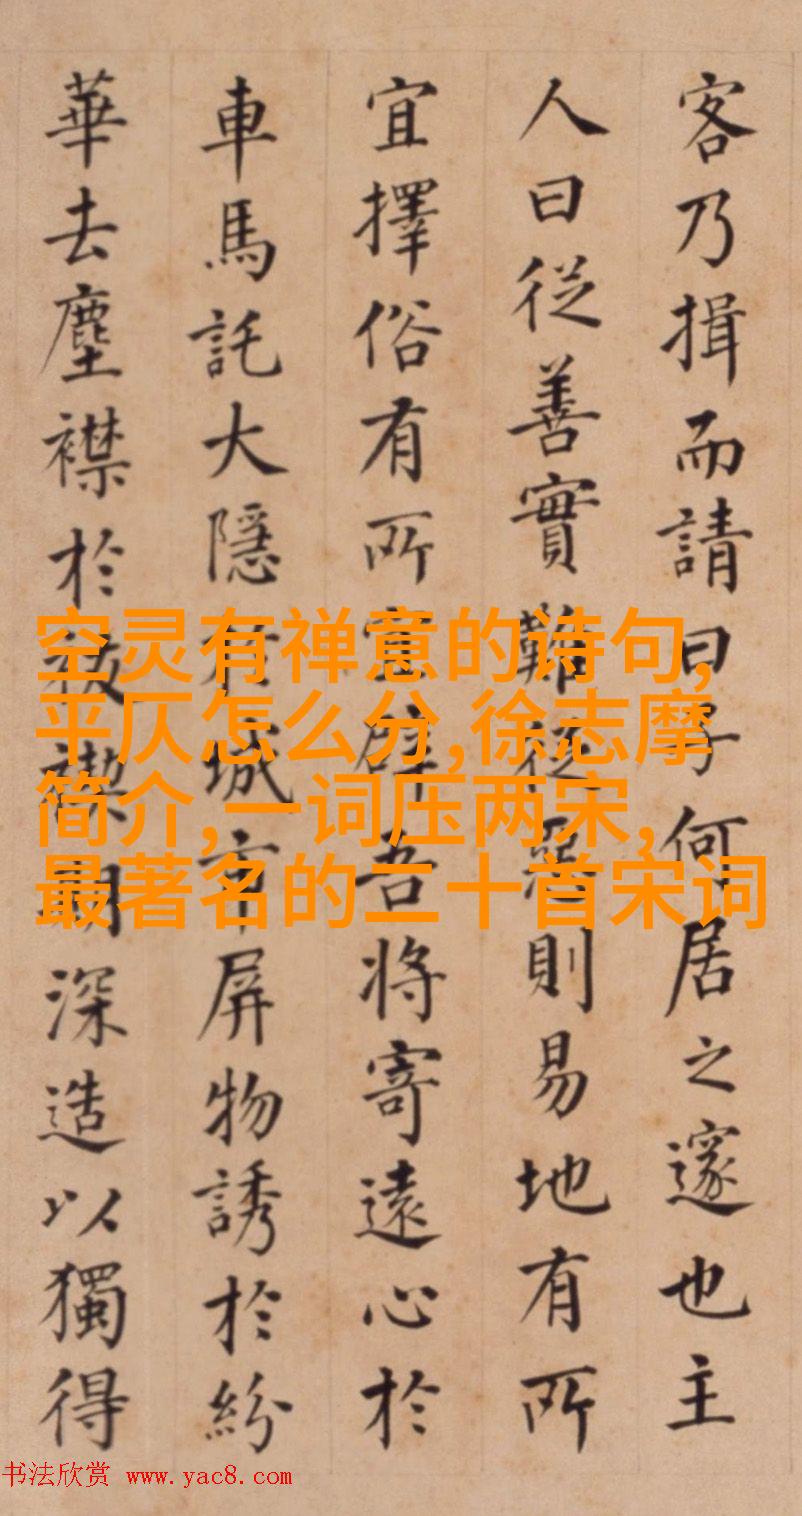 客乃揖而請曰子何居之邃也主
人曰從善實難從惡則易地有所
宜擇俗有所辟吾將寄遠心於
車馬託大隱於城市屏物誘於紛
華去塵襟於禊深造以獨得
空灵有禅意的诗句,
平仄怎么分,徐志摩
简介,一词压两宋,
最著名的二十首宋词
书法欣赏 www.yac8.com